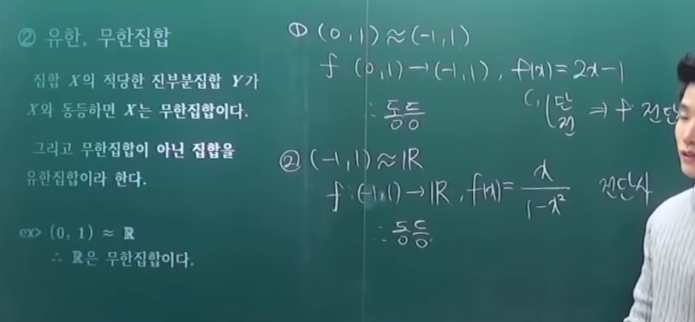 ② 유한, 무한집합
집합 X의 적당한 진부분집합 Y가
X와 동등하면 X는 무한집합이다.
그리고 무한집합이 아닌 집합을
유한집합이라 한다.
ex> (0, 1) ≈ ℝ
∴ ℝ은 무한집합이다.
① (0,1) ≈ (-1,1)
f (0,1) → (-1,1), f(x)=2x-1
∴ 동등
단
전 ⇒ f 전단
② (-1,1) ≈ ℝ
f:(-1,1) → ℝ, f(x)= x/1-x² 전단사
∴ 동등